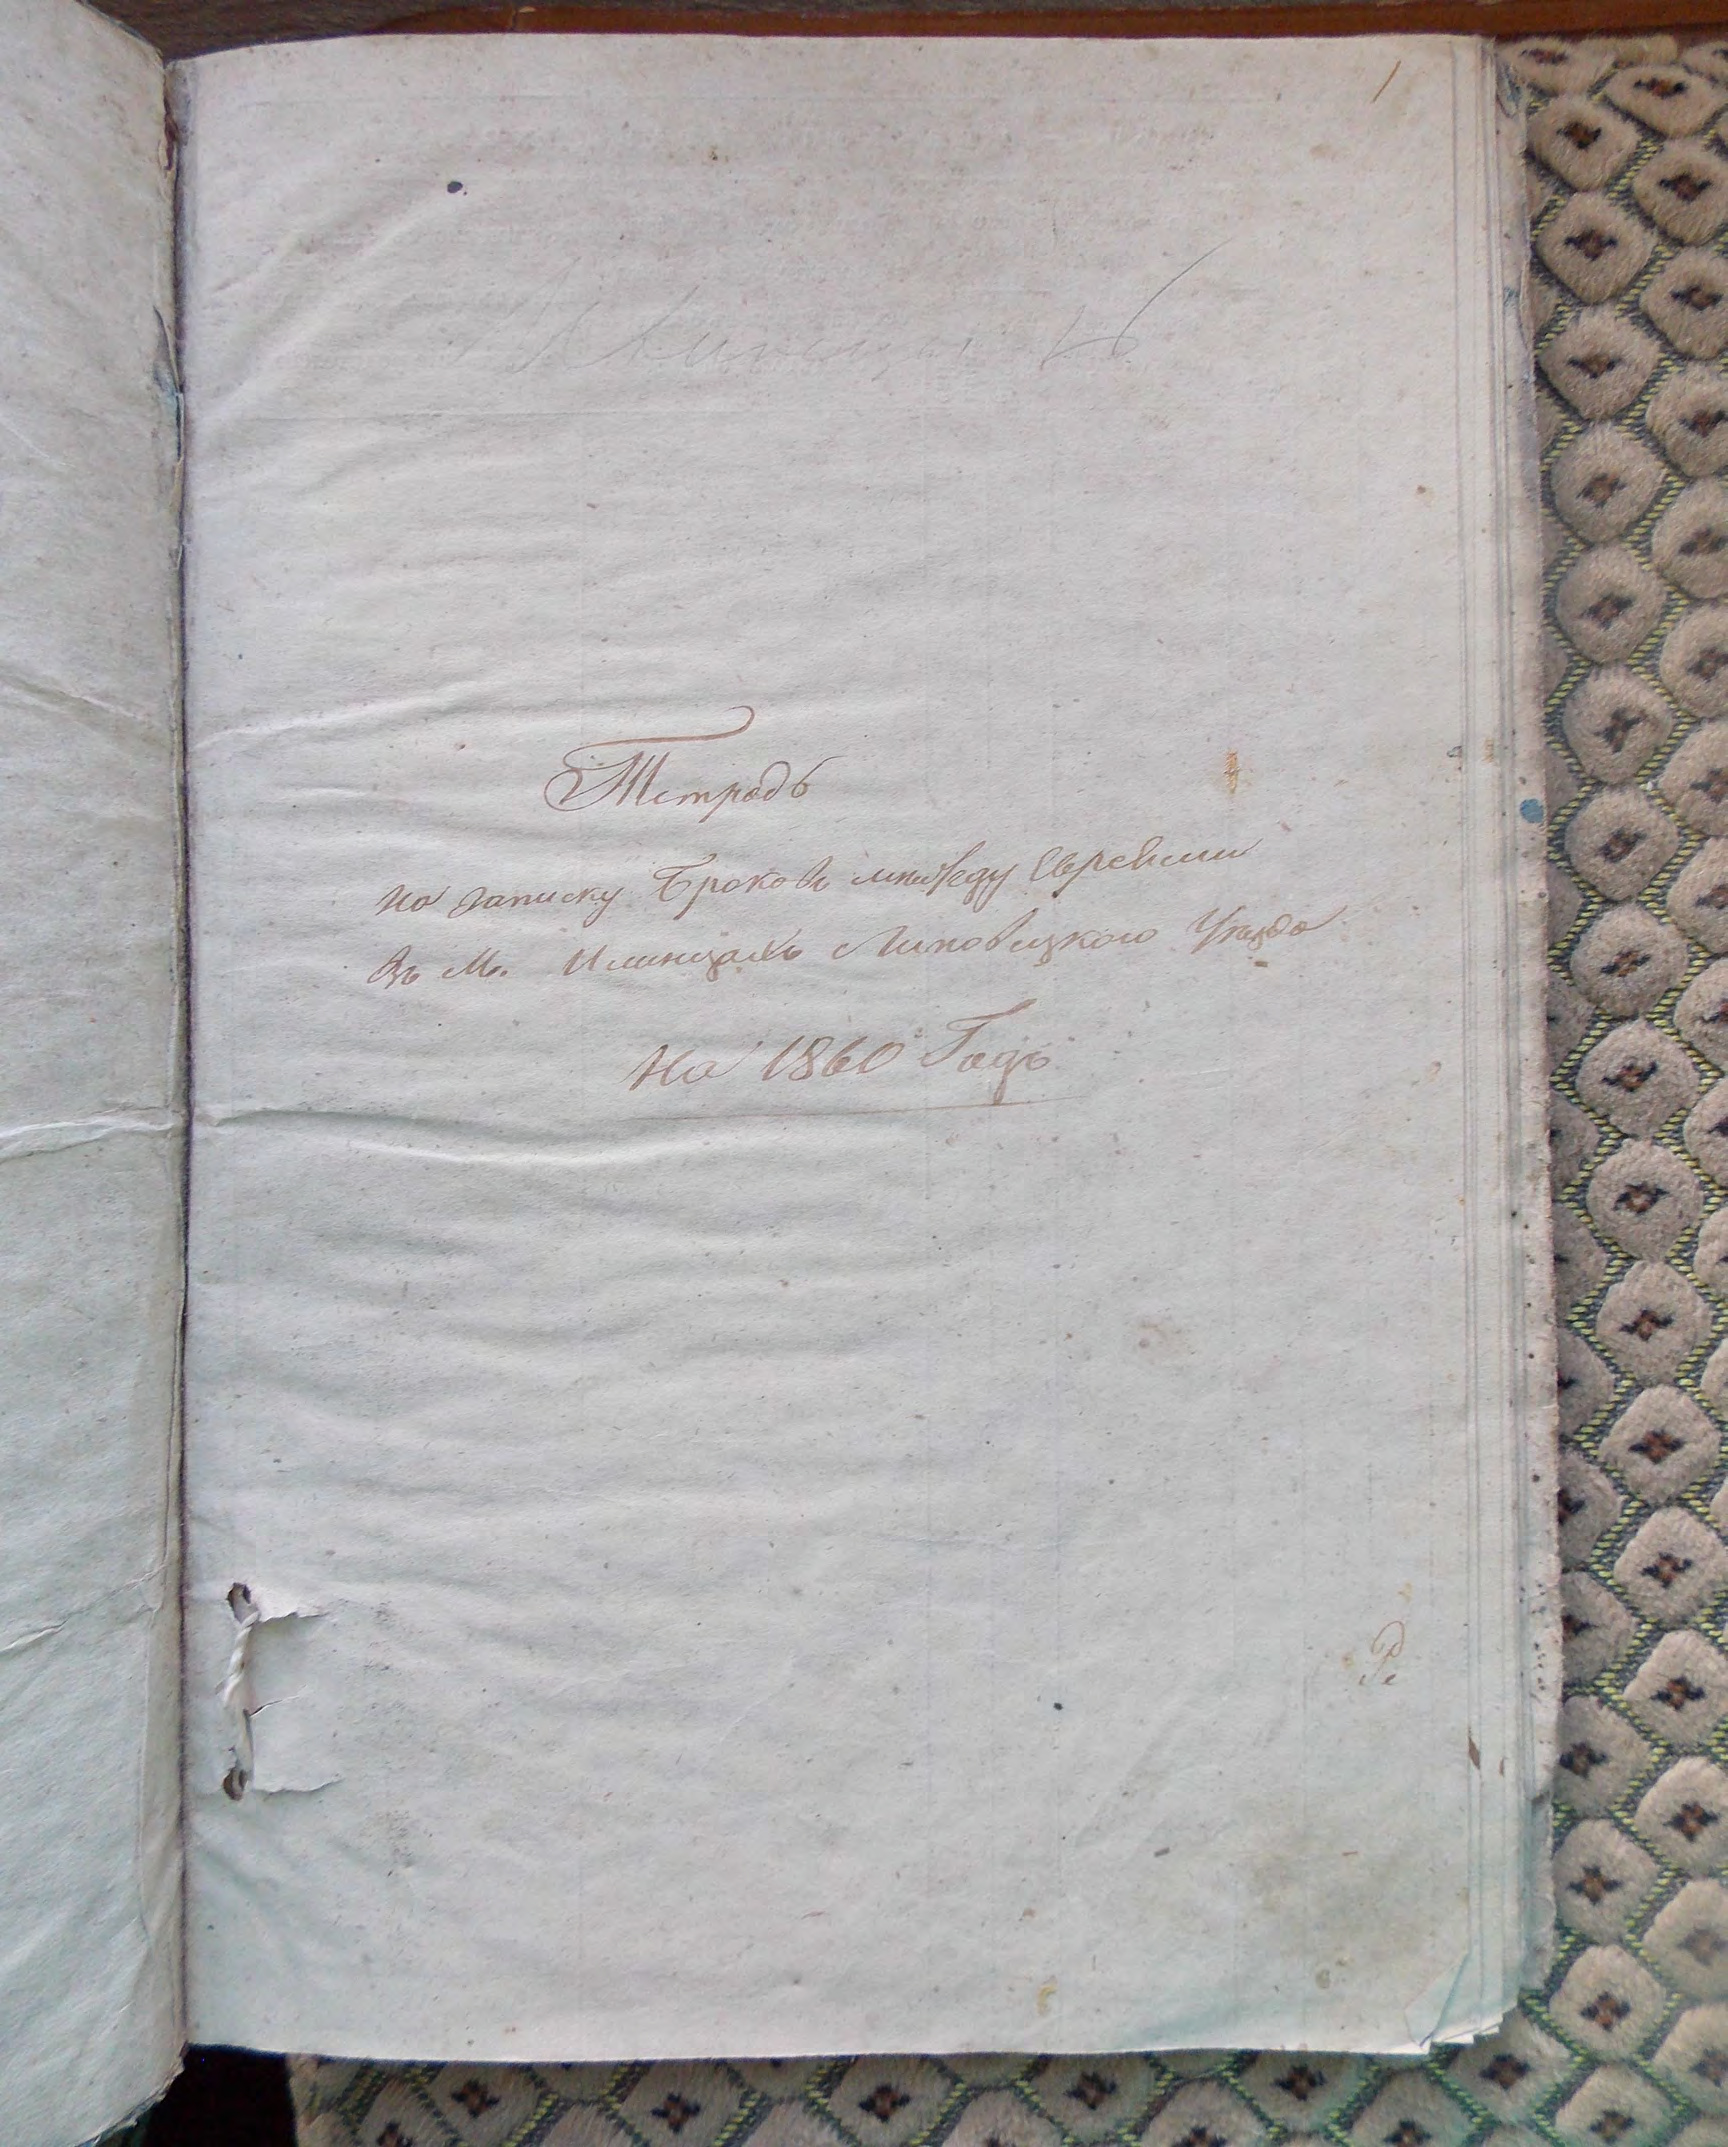 1
Тетрадь
на записку Браковъ между Евреями
въ М. Илинцахъ Липовецкого Уезда
на 1860 Годъ